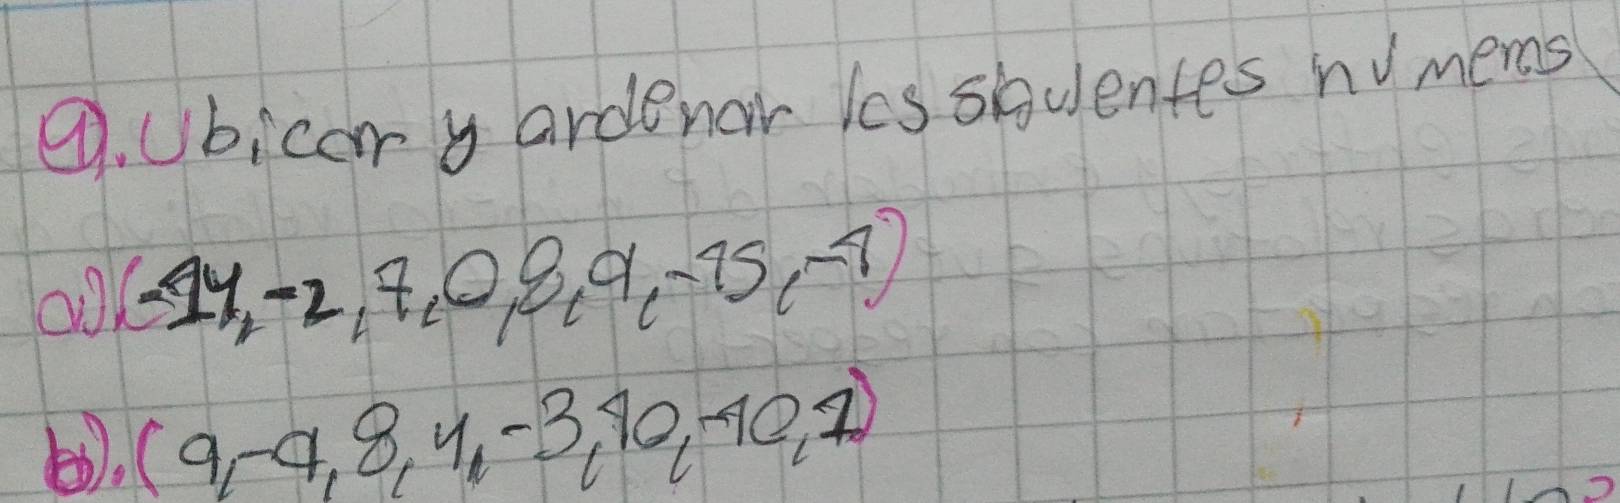 9). Ubicar y ardenar los siguientes numeros
a) (-14, -2, 7, 0, 8, 9, -15, -1)
b). (9, -9, 8, 4, -3, 10, -10, 1)